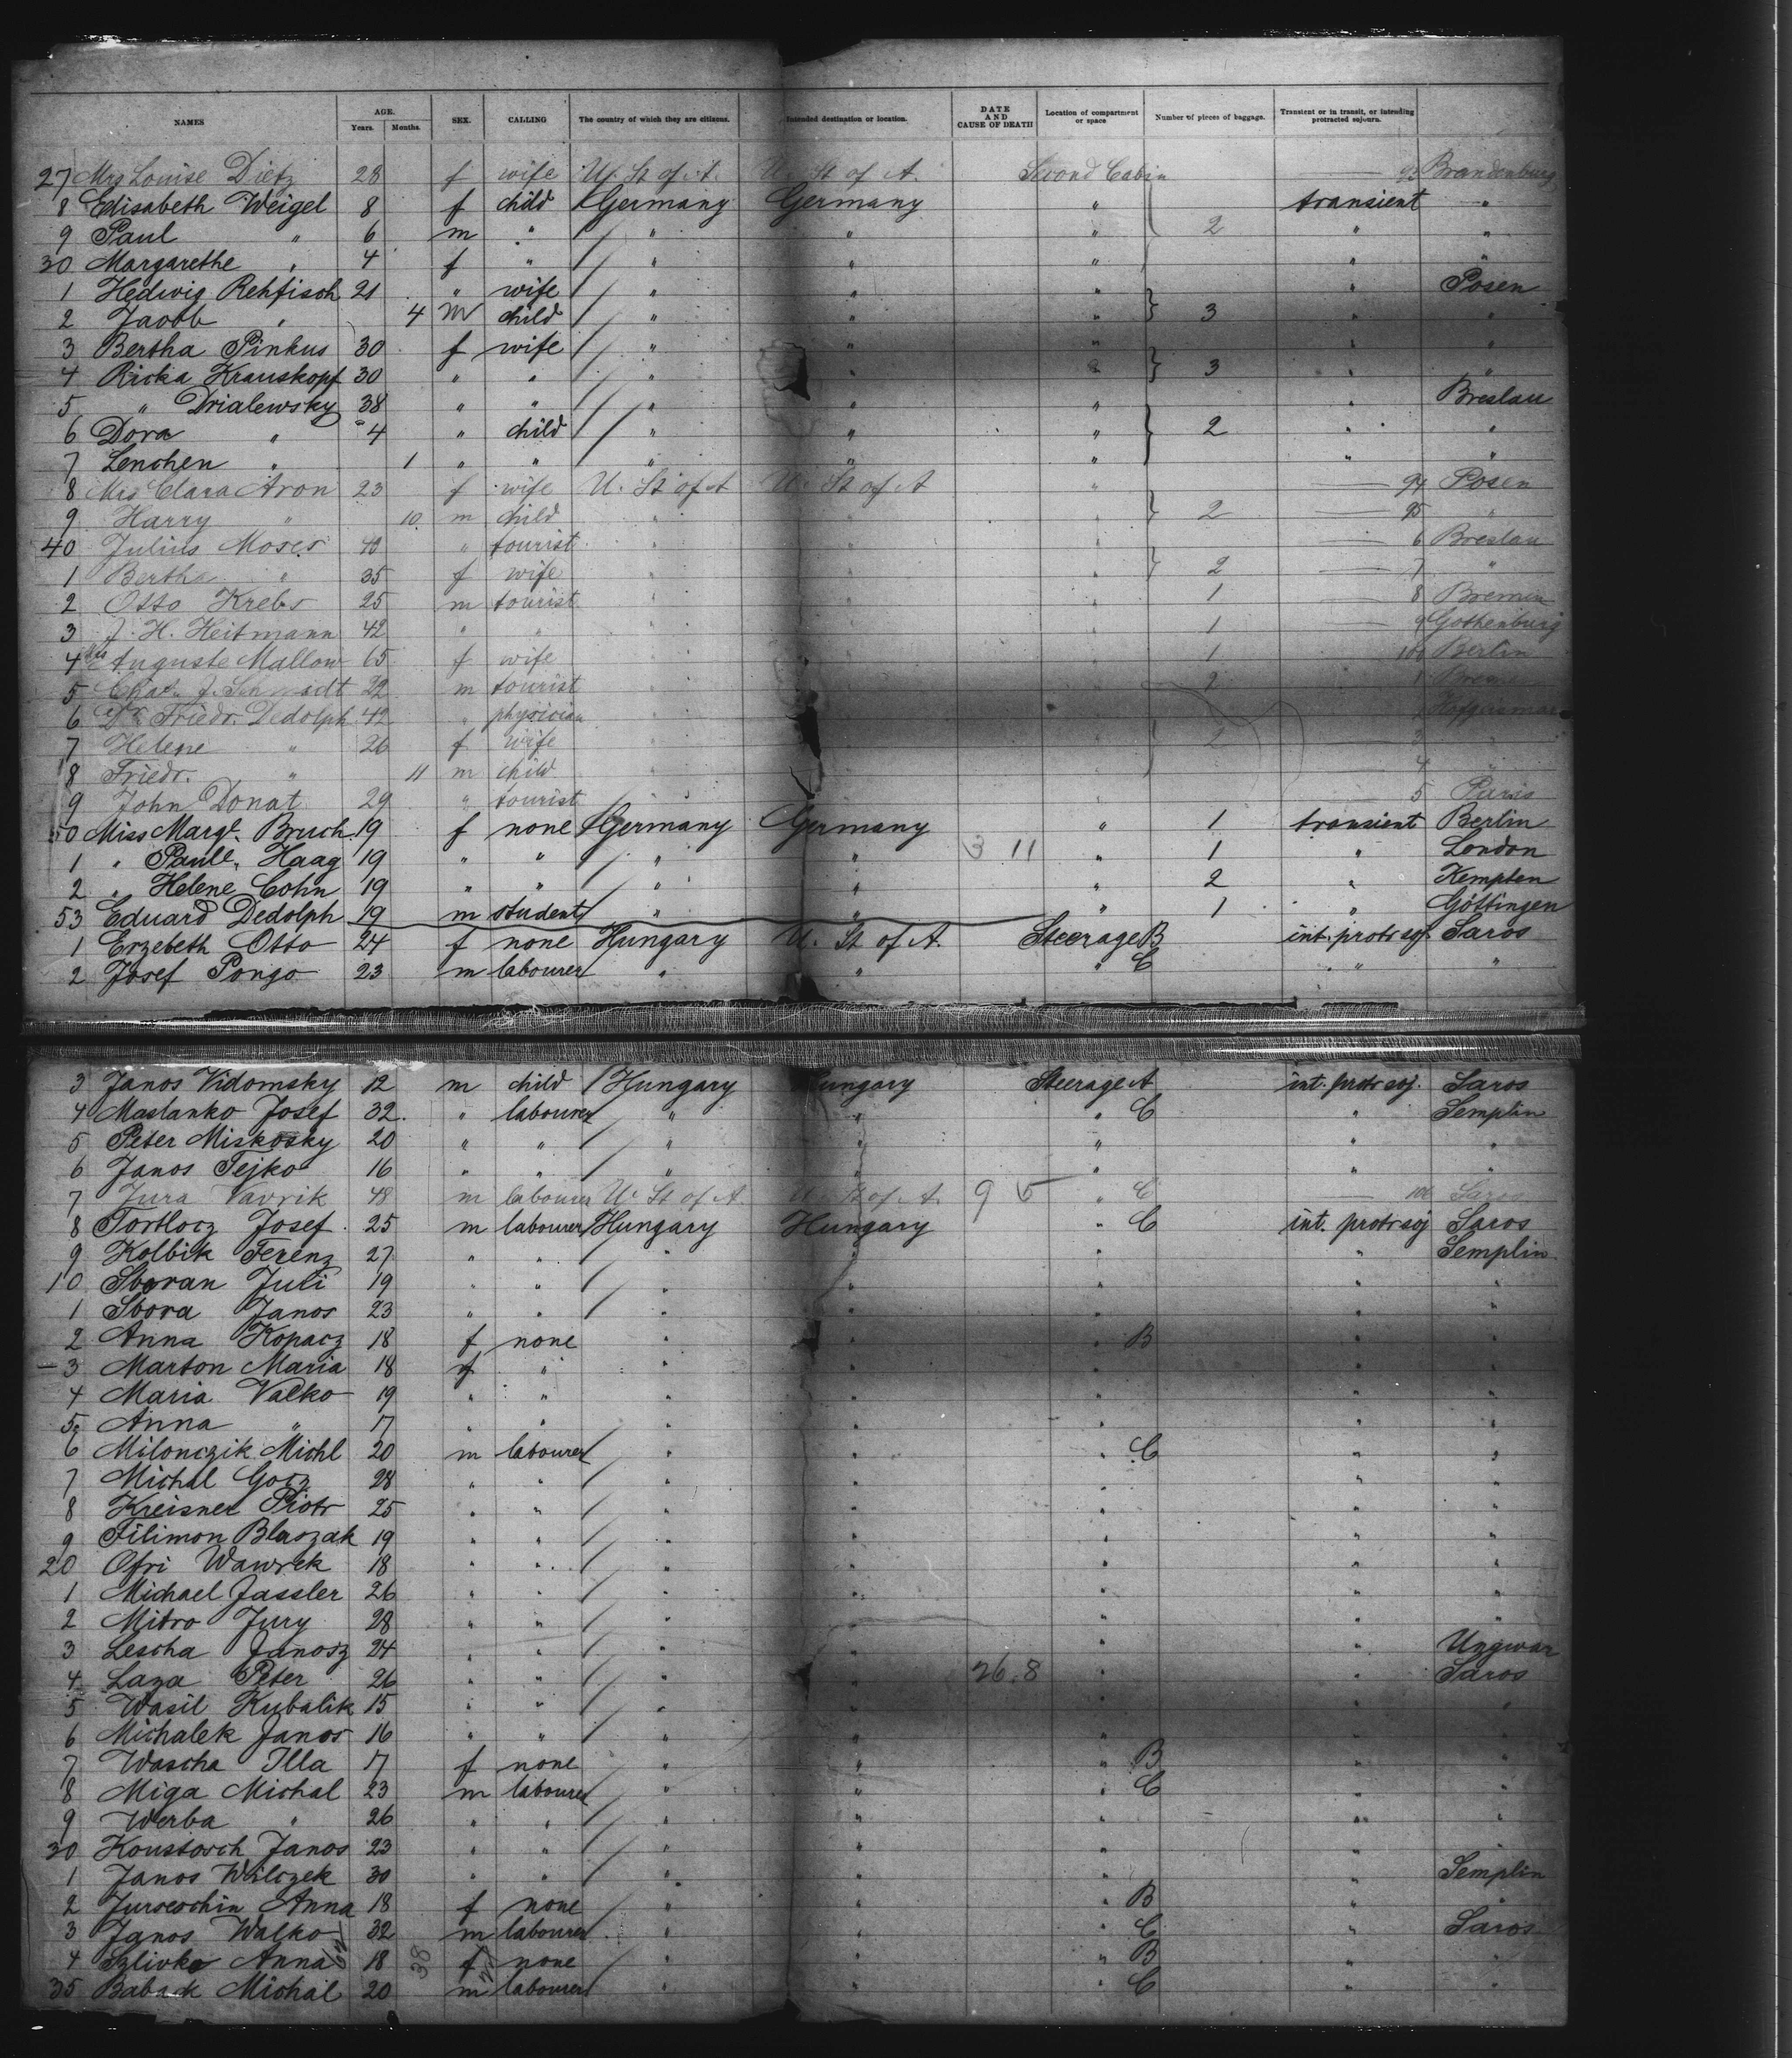 NAMES AGE. Years. Months. SEX. CALLING The country of which they are citizens. Intended destination or location. DATE AND CAUSE OF DEATH Location of compartment or space Number of pieces of baggage. Transient or in transit, or intending protracted sojourn.
27 Mrs Louise Dietz 28 f wife U. St of A. U. St of A. Second Cabin 93 Brandenburg
8 Elisabeth Weigel 8 f child Germany Germany " transient "
9 Paul " 6 m " " " " 2 " "
30 Margarethe " 4 f " " " " " "
1 Hedwig Rehfisch 21 " wife " " " " Posen
2 Jacob " 4 m child " " " 3 " "
3 Bertha Pinkus 30 f wife " " " " "
4 Ricka Krauskopf 30 " " " " " 3 " "
5 " Drialewsky 38 " " " " " " Breslau
6 Dora " 4 " child " " " 2 " "
7 Lenchen " 1 " " " " " " "
8 Mrs Clara Aron 23 f wife U. St of A U. St of A " 94 Posen
9 Harry " 10 m child " " " 2 95 "
40 Julius Moses 40 " tourist " " " 6 Breslau
1 Bertha " 35 f wife " " " 2 7 "
2 Otto Krebs 25 m tourist " " " 1 8 Bremen
3 J. H. Heitmann 42 " " " " " 1 9 Gothenburg
4 Mrs Auguste Mallow 65 f wife " " " 1 100 Berlin
5 Chas. J. Schmadt 22 m tourist " " " 1 1
6 Dr. Friedr. Dedolph 42 " physician " " "
7 Helene " 26 f wife " " " 2 3 "
8 Friedr. " 11 m child " " " 4 "
9 John Donat 29 " tourist " " " 5 Paris
50 Miss Margt. Bruch 19 f none Germany Germany " 1 transient Berlin
1 " Paule. Haag 19 " " " " 3 11 " 1 " London
2 " Helene Cohn 19 " " " " " 2 " Kempten
53 Eduard Dedolph 19 m student " " " 1 " Göttingen
1 Erzebeth Otto 24 f none Hungary U. St of A. Steerage B int. protr soj. Saros
2 Josef Pongo 23 m labourer " " " C " "
3 Janos Vidomsky 12 m child Hungary Hungary Steerage A int. protr soj. Saros
4 Maslanko Josef 32 " labourer " " " C " Semplin
5 Peter Miskosky 20 " " " " " " "
6 Janos Tejko 16 " " " " " " "
7 Jura Vavrik 48 m labourer U. St of A. U. St of A. 9 5 " C 106 Saros
8 Tortlocz Josef 25 m labourer Hungary Hungary " C int. protr soj Saros
9 Kolbik Ferenz 27 " " " " " " Semplin
10 Sboran Juli 19 " " " " " " "
1 Sbora Janos 23 " " " " " " "
2 Anna Kopacz 18 f none " " " B " "
3 Marton Maria 18 f " " " " " "
4 Maria Valko 19 " " " " " " "
5 Anna " 17 " " " " " " "
6 Milonczik Michl 20 m labourer " " " C " "
7 Michal Gocz 28 " " " " " " "
8 Kreisner Piotr 25 " " " " " " "
9 Filimon Blaszak 19 " " " " " " "
20 Ofri Wawrek 18 " " " " " " "
1 Michael Jassler 26 " " " " " " "
2 Mitro Jury 28 " " " " " " "
3 Lescha Janosz 24 " " " " " " Ungwar
4 Laza Peter 26 " " " " 26.8 " " Saros
5 Wasil Kubalik 15 " " " " " " "
6 Michalek Janos 16 " " " " " " "
7 Wascha Illa 17 f none " " " B " "
8 Miga Michal 23 m labourer " " " C " "
9 Werba " 26 " " " " " " "
30 Koustosch Janos 23 " " " " " " "
1 Janos Wilczek 30 " " " " " " Semplin
2 Anna 18 f none " " " B " "
3 Janos Walko 32 m labourer " " " C " Saros
4 Szlivko Anna 18 38 f none " " " B " "
35 Baback Michal 20 m labourer " " " C " "